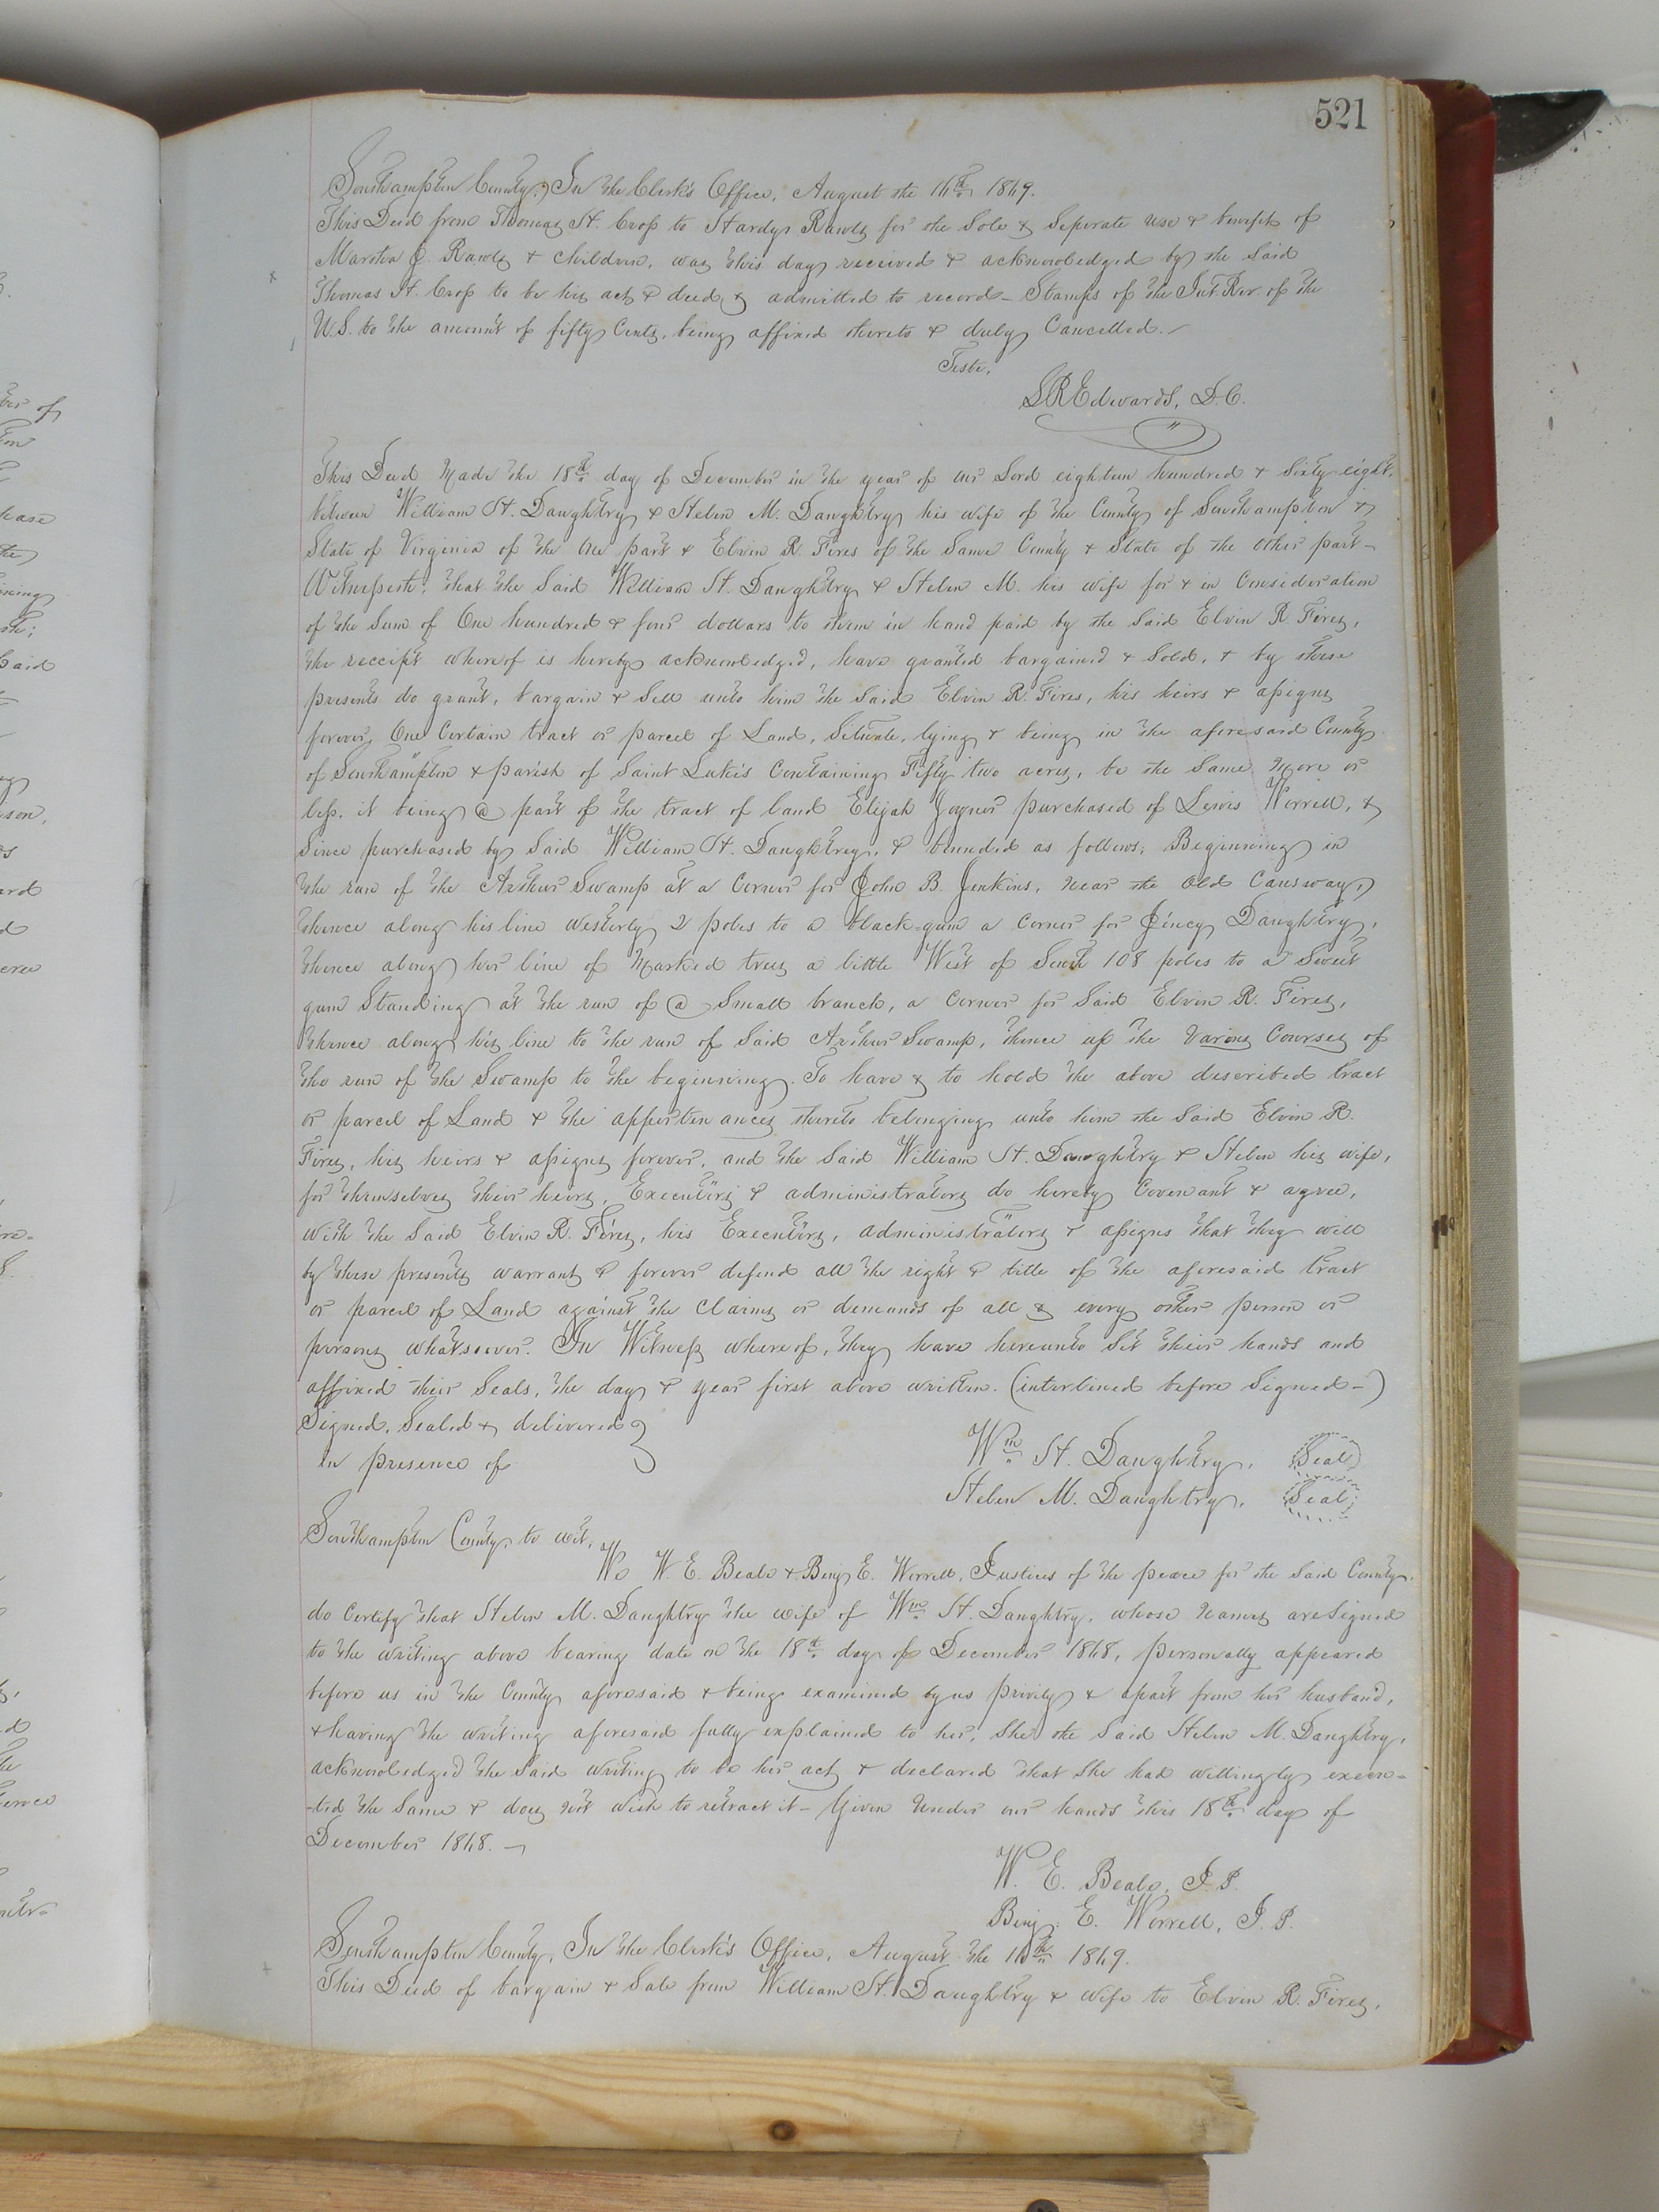 521
Southampton County, In the Clerk's Office, August the 16th 1869.
This Deed from Thomas H. Crop to Hardy Rawls for the Sole & Seperate use & benefit of
Martha J. Rawls & children, was this day received & acknowledged by the Said
Thomas H. Crop to be his act & deed, & admitted to record – Stamps of the Int. Rev. of the
U.S. to the amount of fifty Cents, being affixed thereto & duly Cancelled. –
Teste,
L R Edwards, D.C.
This Deed Made the 18th day of December in the year of our Lord eighteen hundred & Sixty eight,
between William H. Daughtry & Helen M. Daughtry his wife of the County of Southampton &
State of Virginia of the One part & Elvin R. Fires of the Same County & State of the other part –
Witnesseth; that the Said William H. Daughtry & Helen M. his wife for & in Consideration
of the Sum of One hundred & four dollars to them in hand paid by the Said Elvin R. Fires,
the receipt whereof is hereby acknowledged, have granted bargained & Sold, & by these
presents do grant, bargain & Sell unto him the Said Elvin R. Fires, his heirs & assigns
forever, One Certain tract or parcel of Land, Situate, lying & being in the aforesaid County
of Southampton & parish of Saint Luke's Containing Fifty two acres, be the Same More or
less, it being @ part of the tract of land Elijah Joyner purchased of Lewis Worrell, &
Since purchased by Said William H. Daughtrey, & bounded as follows; Beginning in
the run of the Arthur Swamp at a Corner for John B. Jenkins, near the Old Causway,
thence along his line westerly 2 poles to a black-gum a Corner for Jincy Daughtry,
thence along her line of Marked trees a little West of South 108 poles to a Sweet
gum Standing at the run of @ Small branch, a Corner for Said Elvin R. Fires,
thence along his line to the run of Said Arthur Swamp, thence up the Varous Courses of
the run of the Swamp to the beginning. To have & to hold the above described tract
or parcel of Land & the appertenances thereto belonging unto him the Said Elvin R.
Fires, his heirs & assigns forever, and the Said William H. Daughtry & Helen his wife,
for themselves their heirs, Executors & administrators do hereby Covenant & agree,
with the Said Elvin R. Fires, his Executors, administrators & assigns that they will
by these presents warrant & forever defend all the right & title of the aforesaid tract
or parcel of Land against the Claims or demands of all & every other person or
persons whatsoever. In Witness whereof, they have hereunto Set their hands and
affixed their Seals, the day & year first above written. (interlined before Signed –)
Signed, Sealed & delivered }
in presence of
Wm H. Daughtry, Seal
Helen M. Daughtry, Seal
Southampton County, to wit,
We W. E. Beale & Benj E. Worrell, Justices of the peace for the Said County,
do Certify that Helen M. Daughtry the wife of Wm H. Daughtry, whose names are Signed
to the writing above bearing date on the 18th day of December 1868, personally appeared
before us in the County aforesaid & being examined by us privily & apart from her husband,
& having the writing aforesaid fully explained to her, She the Said Helen M. Daughtry,
acknowledged the Said writing to be her act & declared that She had willingly execu-
-ted the Same & does not wish to retract it – Given Under our hands this 18th day of
December 1868. –
W. E. Beale, J. P.
Benj. E. Worrell, J. P.
Southampton County, In the Clerk's Office, August the 16th 1869.
This Deed of bargain & Sale from William H. Daughtry & wife to Elvin R. Fires,